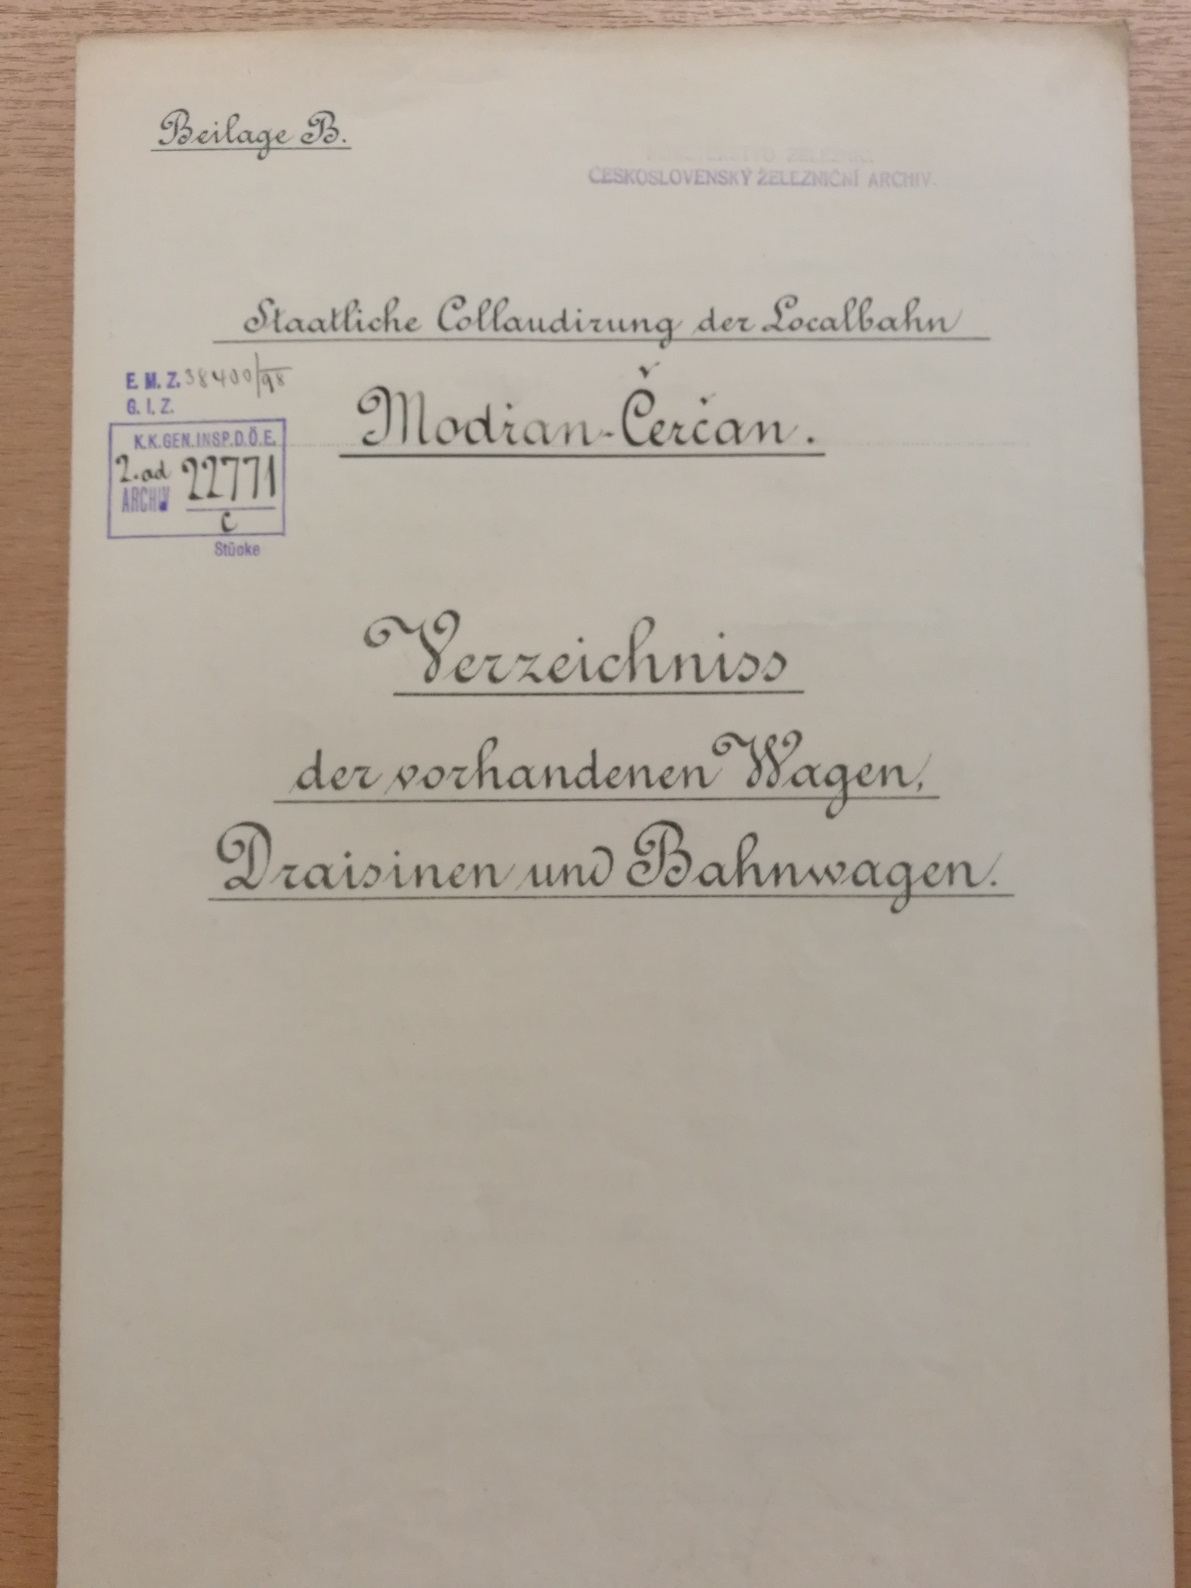 Beilage B.
ČESKOSLOVENSKÝ ŽELEZNIČNÍ ARCHIV.
Staatliche Collaudirung der Localbahn
Modřan-Čerčan.
E. M. Z. 38400/98
G. I. Z.
K.K.GEN.INSP.D.Ö.E.
2. ad 22771
ARCHIV
c
Stücke
Verzeichniss
der vorhandenen Wagen,
Draisinen und Bahnwagen.